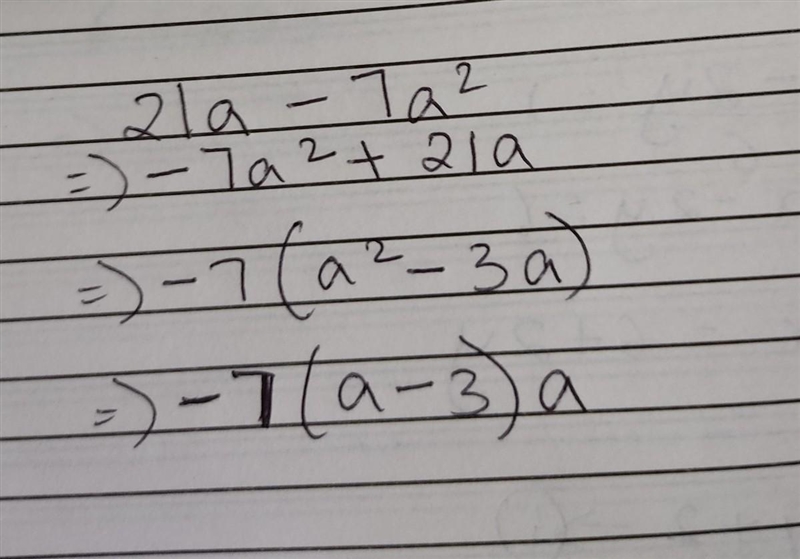 21a - 7a²
=) - 7a² + 21a
=) - 7(a² - 3a)
=) - 7(a - 3)a